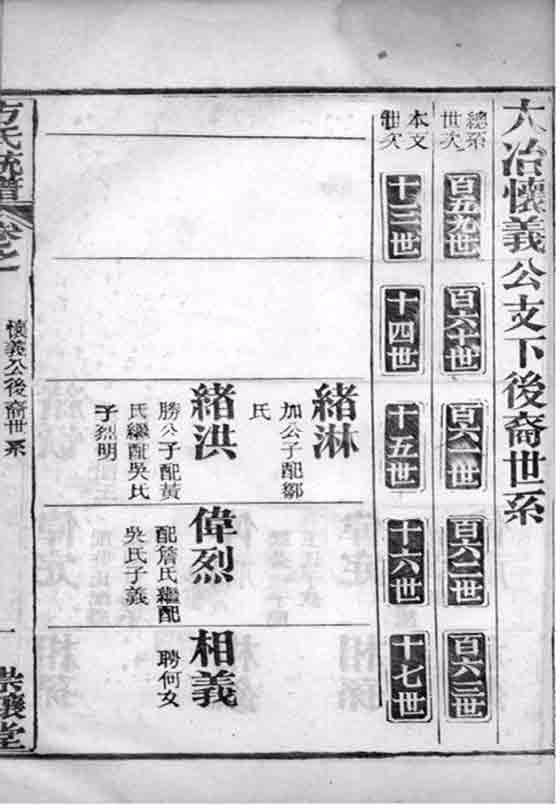 大冶懷義公支下後裔世系
總系世次
百五九世
百六十世
百六一世
百六二世
百六三世
本支世次
十三世
十四世
十五世
十六世
十七世
緒淋
加公子配鄒
氏
緒洪
勝公子配黃
氏繼配吳氏
子烈明
偉烈
配詹氏繼配
吳氏子義
相義
聘何女
方氏統譜
卷之一
懷義公後裔世系
一
崇讓堂